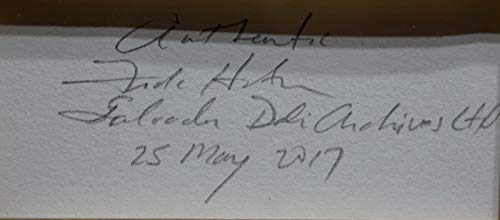 Authentic
Salvador Dali Archives Ltd
25 May 2017